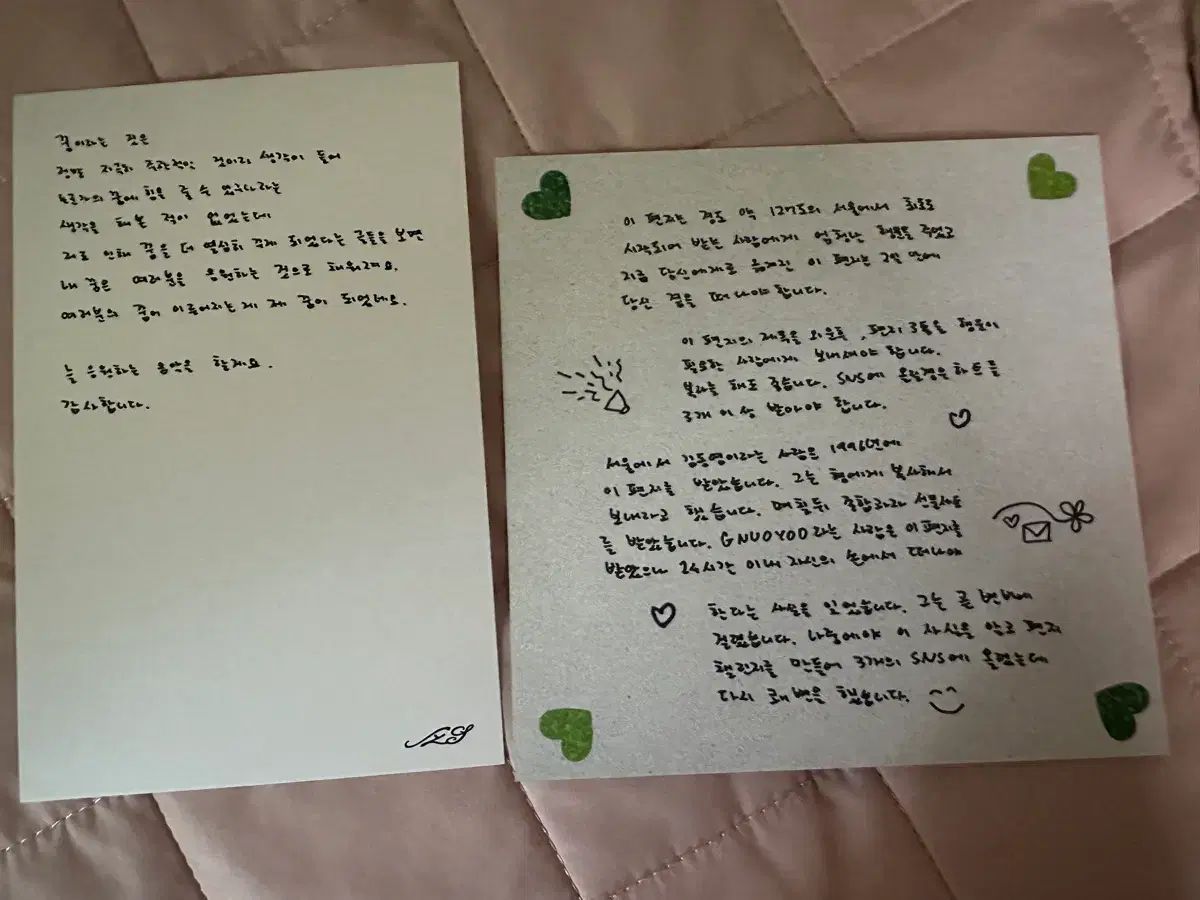 꿈이라는 것은
정말 지극히 주관적인 것이라 생각이 들어
누군가의 꿈에 힘을 줄 수 있구나라는
생각을 해본 적이 없었는데
저로 인해 꿈을 더 열심히 꾸게 되었다는 글들을 보면
내 꿈은 여러분을 응원하는 것으로 채워져요.
여러분의 꿈이 이루어지는게 제 꿈이 되었네요.
늘 응원하는 음악을 할게요.
감사합니다.
이 편지는 경도 약 127도의 서울에서 최초로
시작되어 받는 사람에게 엄청난 행운을 주었고
지금 당신에게로 옮겨진 이 편지는 2일 안에
당신 곁을 떠나야 합니다.
이 편지의 제목을 외운 후, 편지 3통을 행운이
필요한 사람에게 보내셔야 합니다.
복사를 해도 좋습니다. SNS에 올릴경우 하트를
3개 이상 받아야 합니다.
서울에서 김동영이라는 사람은 1996년에
이 편지를 받았습니다. 그는 형에게 복사해서
보내라고 했습니다. 며칠뒤 종합과자 선물세트
를 받았습니다. GNUOYOD라는 사람은 이 편지를
받았으나 24시간 이내 자신의 손에서 떠나야
한다는 사실을 잊었습니다. 그는 곧 변비에
걸렸습니다. 나중에야 이 사실을 알고 편지
챌린지를 만들어 3개의 SNS에 올렸는데
다시 쾌변을 했습니다.